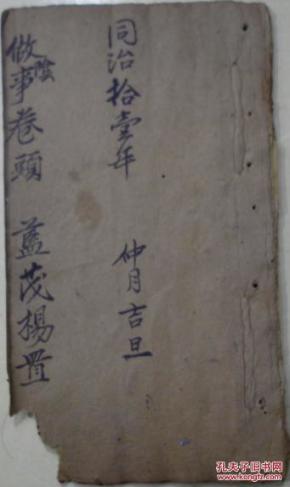 同治拾壹年 仲月吉旦
做陰事卷頭 藍茂楊置
孔夫子旧书网